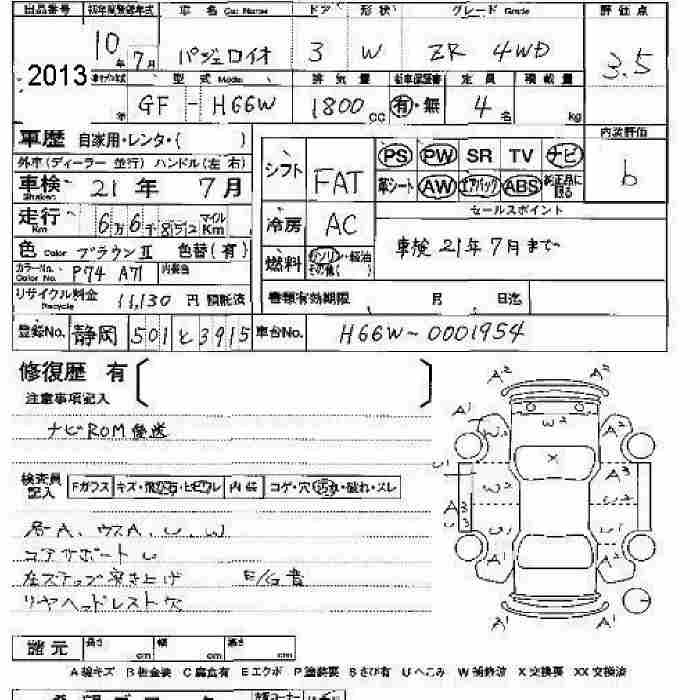 出品番号 初年度登録年式 車名 Car Name ドア 形状 グレード Grade 評価点
2013 10年7月 パジェロイオ 3 W ZR 4WD 3.5
型式 Model 排気量 新車保証書 定員 積載量
年 GF - H66W 1800cc 有・無 4名 kg
車歴 自家用・レンタ・( )
内装評価
b
外車(ディーラー 並行) ハンドル(左 右)
車検 21年 7月
走行 Km 6万6千852 マイル Km
色 Color ブラウンII 色替(有)
カラーNo. Color No. P74 A71 内装色
リサイクル料金 Recycle 11,130円 預託済
シフト FAT PS PW SR TV ナビ
革シート AW エアバッグ ABS 純正品に限る
冷房 AC
セールスポイント
車検 21年7月まで
燃料 ガソリン・軽油 その他( )
書類有効期限 月 日迄
登録No. 静岡 501 と 3915 車台No. H66W-0001954
修復歴 有
注意事項記入
ナビROM後送
検査員記入 Fガラス キズ・飛石・ヒビワレ 内装 コゲ・穴・汚れ・破れ・スレ
A、ウスA、U、W
コアサポート U
左ステップ突き上げ E/G音
リヤヘッドレスト欠
A2 A2
A1 W2 A2
W2 X
U1 A3
W2 W2
A3
U1 U1
A1 A1
諸元 長さ cm 幅 cm 高さ cm
A 線キズ B 板金装 C 腐食有 E エクボ P 塗装要 S さび有 U へこみ W 補修済 X 交換要 XX 交換済